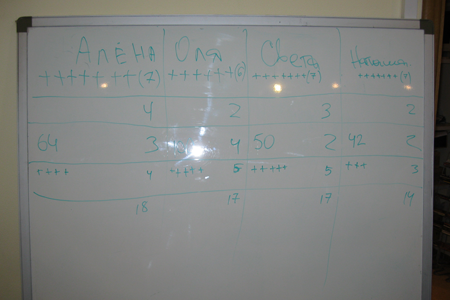 Алёна Оля Света Наташа
+++++ ++(7) ++++++(6) +++++++(7) +++++++
4 2 3 2
64 3 4 50 2 42 2
++++ 4 ++++ 5 +++++ 5 +++ 3
18 17 17 14